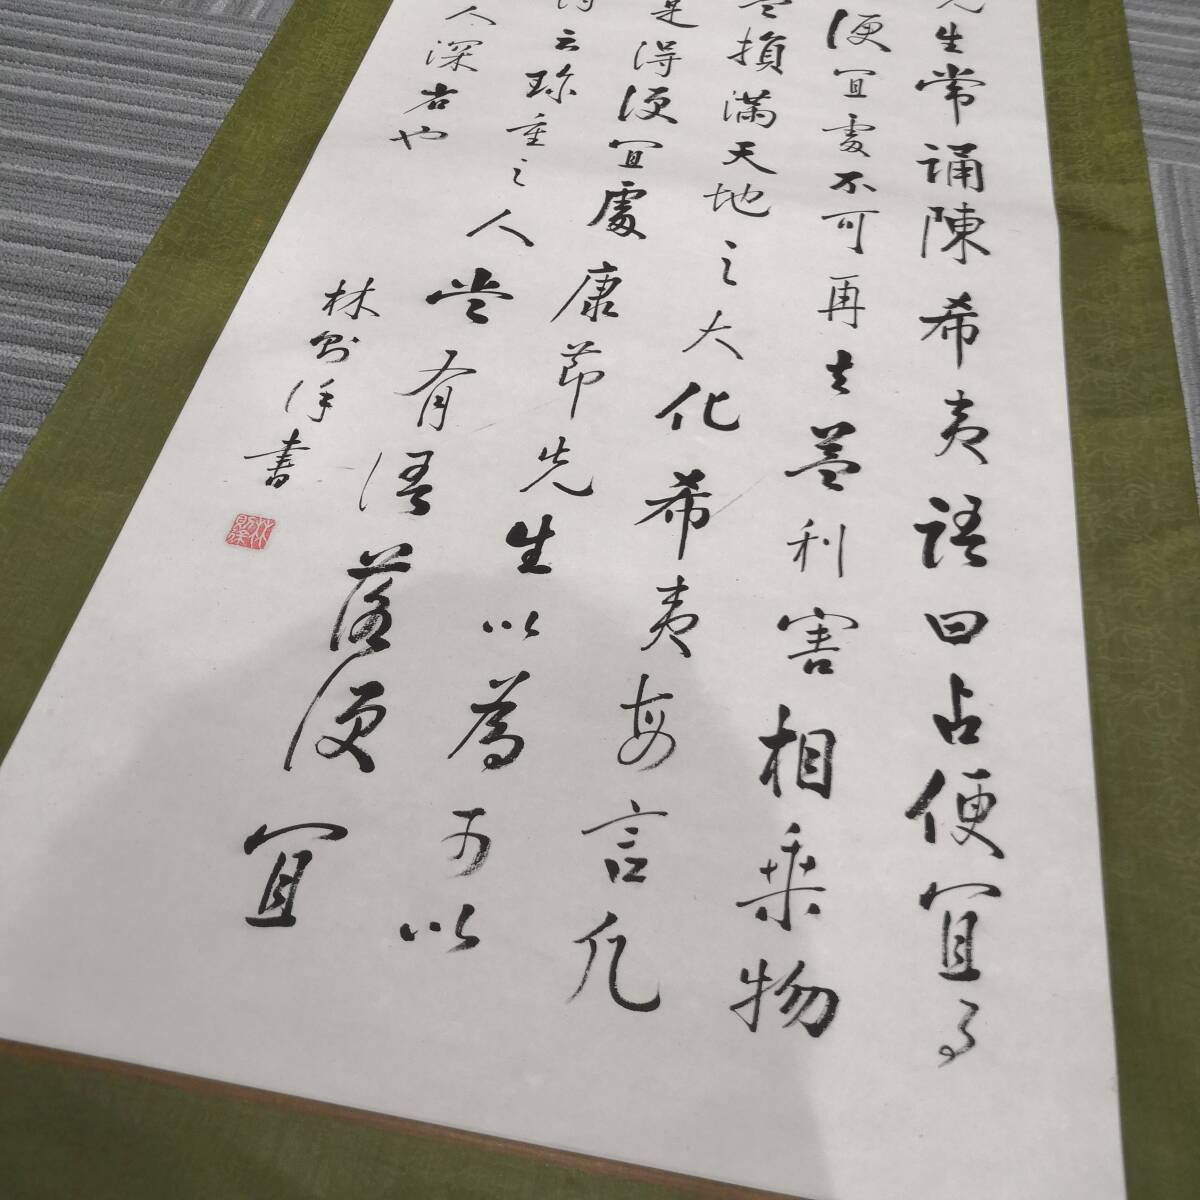 先生常誦陳希夷語曰占便宜事
便宜處不可再去蓋利害相乘物
盈損滿天地之大化希夷每言凡
是得便宜處康節先生以為可以
詩云珍重之人嘗有語落便宜
人深省也
林則徐書
林則徐